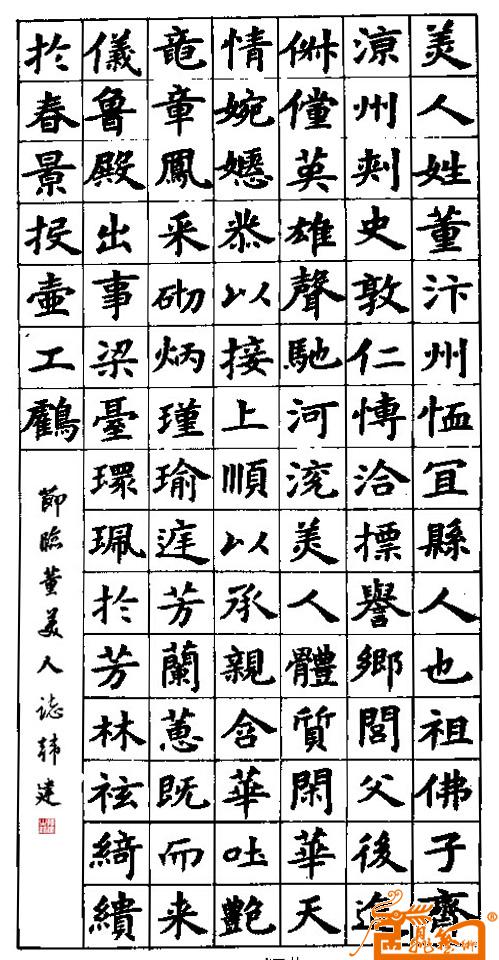 美人姓董汴州恤冝縣人也祖佛子齊
涼州刾史敦仁愽洽摽譽鄉閭父後進
俶儻英雄聲馳河渷美人體質閑華天
情婉嫕恭以接上順以承親含華吐艷
竜章鳳采砌炳瑾瑜庭芳蘭蕙既而来
儀魯殿出事梁臺環珮於芳林袨綺繢
於春景投壺工鸖
節臨董美人誌韓建